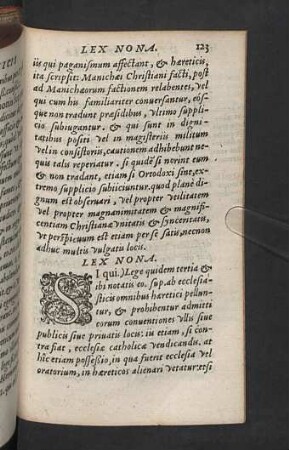 LEX NONA. 123
iis qui paganismum affectant, & hæreticis,
ita scripsit: Manichæi Christiani facti, post
ad Manichæorum factionem relabentes, vel
qui cum his familiariter conversantur, eós-
que non tradunt præsidibus, vltimo suppli-
cio subiugantur. & qui sunt in digni-
tatibus positi vel in magisteriis militum
vel in consistoriis, cautionem adhibebunt ne-
quis talis reperiatur. si quidē si norint eum
& non tradant, etiam si Ortodoxi sint, ex-
tremo supplicio subiiciuntur. quod planè di-
gnum est obseruari, vel propter vtilitatem
vel propter magnanimitatem & magnifi-
centiam Christianæ vnitatis & synceritatis,
vt perspicuum est etiam per se satis, necnon
adhuc multis vulgatis locis.
LEX NONA.
SI qui.) Lege quidem tertia &
ibi notatis eo. sup. ab ecclesia-
sticis omnibus hæretici pellun-
tur, & prohibentur admitti
eorum conuentiones vllis siue
publicis siue priuatis locis: iu etiam, si con-
tra fiat, ecclesiæ catholicæ vendicandis. at
hîc etiam possessio, in qua fuerit ecclesia vel
oratorium, in hæreticos alienari vetatur: etsi